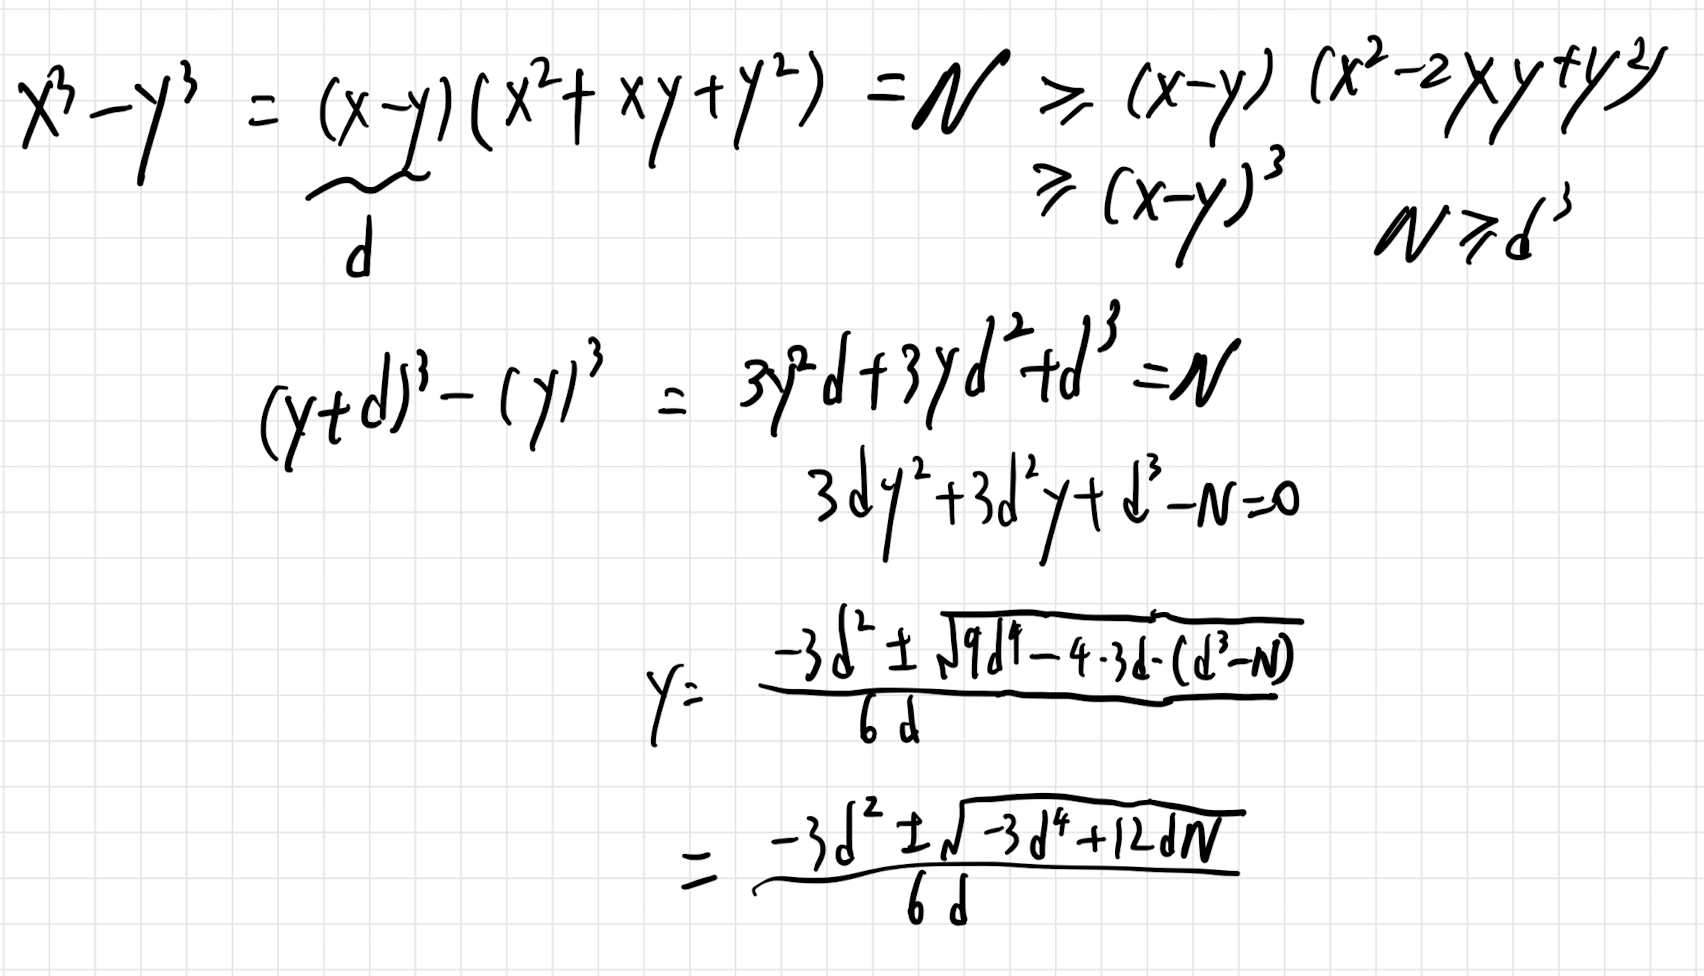 x³ - y³ = (x-y)(x² + xy + y²) = N ≥ (x-y)(x² - 2xy + y²)
d
≥ (x-y)³ N ≥ d³
(y+d)³ - (y)³ = 3y²d + 3yd² + d³ = N
3dy² + 3d²y + d³ - N = 0
y = (-3d² ± √(9d⁴ - 4·3d·(d³-N))) / 6d
= (-3d² ± √(-3d⁴ + 12dN)) / 6d